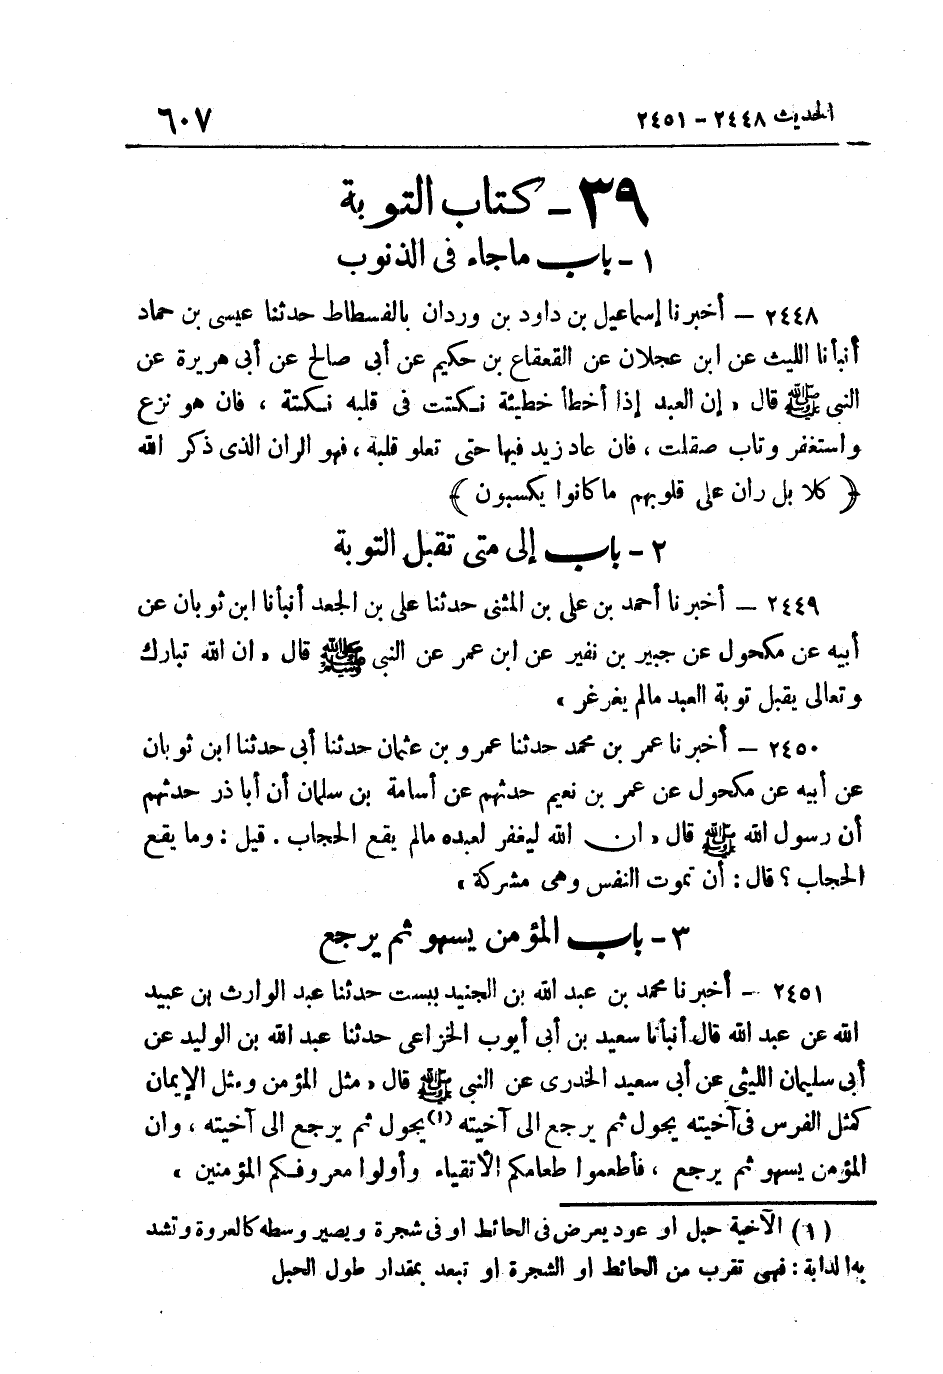 الحديث ٢٤٤٨ - ٢٤٥١
٦٠٧
٣٩ - كتاب التوبة
١ - باب ماجاء فى الذنوب
٢٤٤٨ — أخبرنا إسماعيل بن داود بن وردان بالفسطاط حدثنا عيسى بن حماد
أنبأنا الليث عن ابن عجلان عن القعقاع بن حكيم عن أبى صالح عن أبى هريرة عن
النبى ﷺ قال « إن العبد إذا أخطأ خطيئة نكتت فى قلبه نكتة ، فان هو نزع
واستغفر وتاب صقلت ، فان عاد زيد فيها حتى تعلو قلبه ، فهو الران الذى ذكر الله
﴿ كلا بل ران على قلوبهم ماكانوا يكسبون ﴾
٢ - باب إلى متى تقبل التوبة
٢٤٤٩ — أخبرنا أحمد بن على بن المثنى حدثنا على بن الجعد أنبأنا ابن ثوبان عن
أبيه عن مكحول عن جبير بن نفير عن ابن عمر عن النبى ﷺ قال « ان الله تبارك
وتعالى يقبل توبة العبد مالم يغرغر »
٢٤٥٠ — أخبرنا عمر بن محمد حدثنا عمرو بن عثمان حدثنا أبى حدثنا ابن ثوبان
عن أبيه عن مكحول عن عمر بن نعيم حدثهم عن أسامة بن سلمان أن أبا ذر حدثهم
أن رسول الله ﷺ قال « ان الله ليغفر لعبده مالم يقع الحجاب . قيل : وما يقع
الحجاب ؟ قال : أن تموت النفس وهى مشركة »
٣ - باب المؤمن يسهو ثم يرجع
٢٤٥١ — أخبرنا محمد بن عبد الله بن الجنيد ببست حدثنا عبد الوارث بن عبيد
الله عن عبد الله قال أنبأنا سعيد بن أبى أيوب الخزاعى حدثنا عبد الله بن الوليد عن
أبى سليمان الليثى عن أبى سعيد الخدرى عن النبى ﷺ قال « مثل المؤمن ومثل الإيمان
كمثل الفرس فى آخيته يجول ثم يرجع الى آخيته (١) يجول ثم يرجع الى آخيته ، وان
المؤمن يسهو ثم يرجع ، فأطعموا طعامكم الأتقياء وأولوا معروفكم المؤمنين »
(١) الآخية حبل او عود يعرض فى الحائط او فى شجرة ويصير وسطه كالعروة وتشد
به الدابة : فهى تقرب من الحائط او الشجرة او تبعد بمقدار طول الحبل